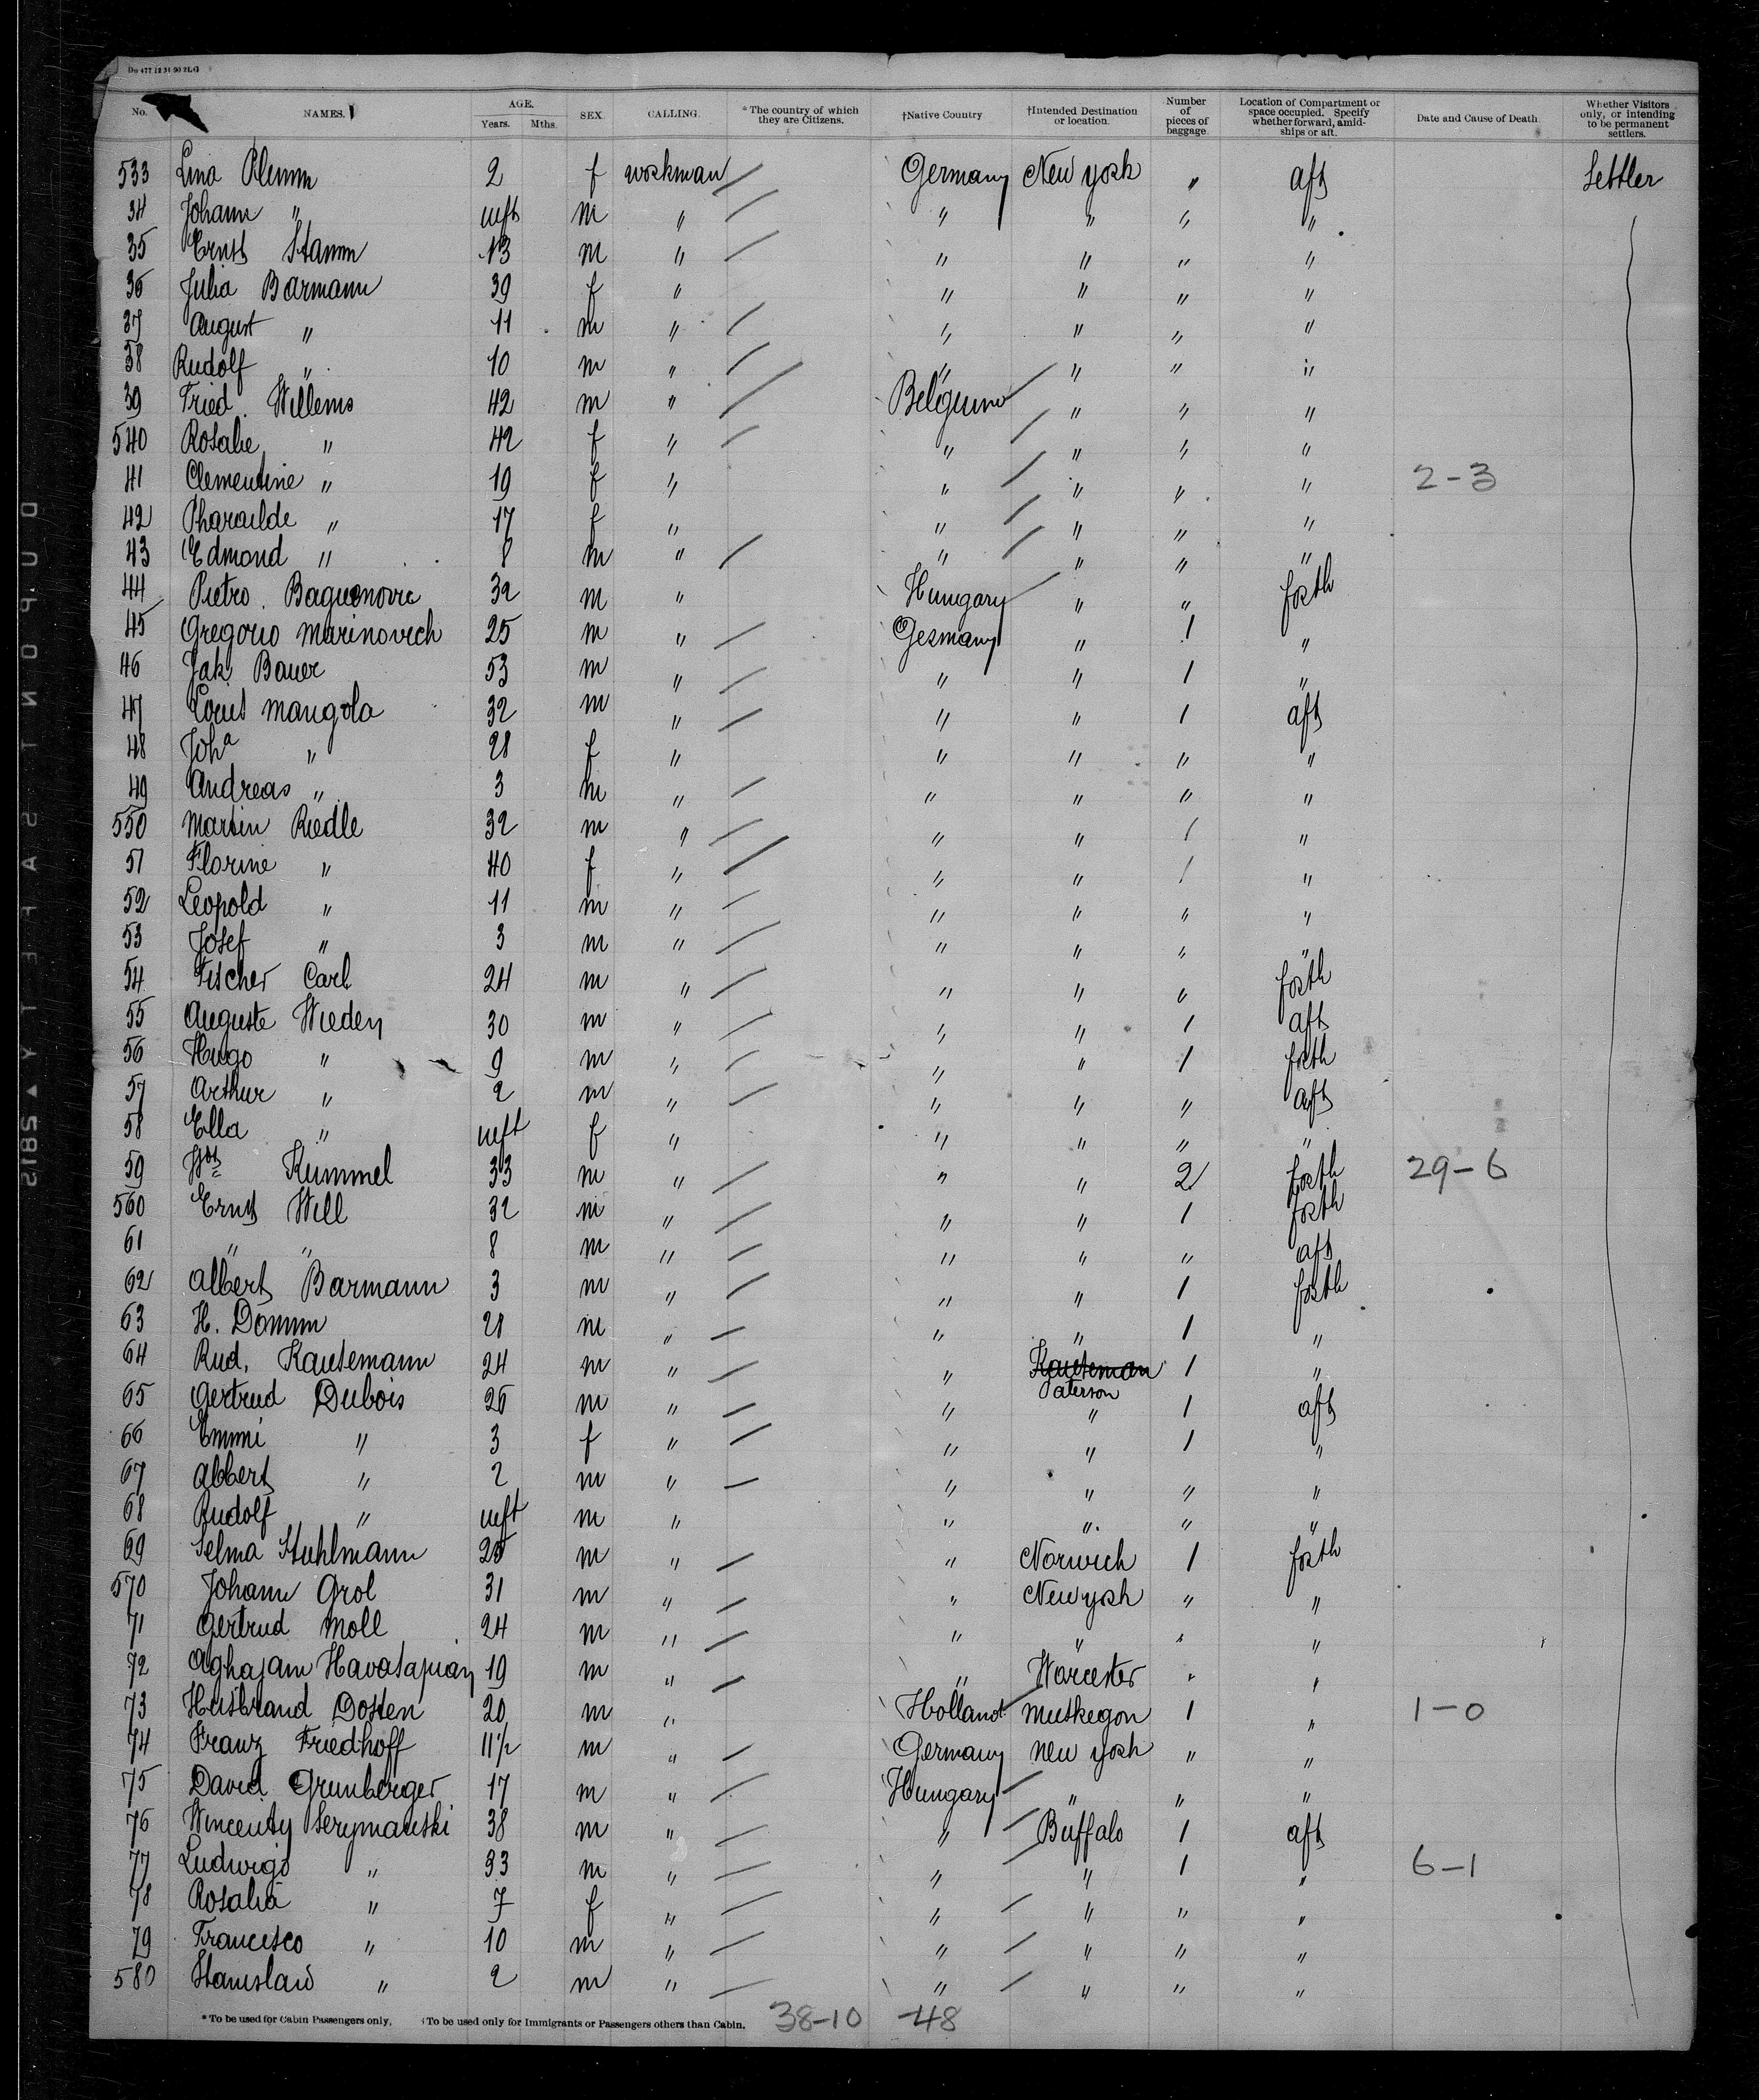 Do 477 12 31 90 2LG
No. NAMES. AGE. Years. Mths. SEX. CALLING. * The country of which they are Citizens. †Native Country †Intended Destination or location. Number of pieces of baggage Location of Compartment or space occupied. Specify whether forward, amidships or aft. Date and Cause of Death. Whether Visitors only, or intending to be permanent settlers.
533 Lina Klemm 2 f workman Germany New York " aft Settler
34 Johann " inft m " " " " "
35 Ernst Stamm 13 m " " " " "
36 Julia Barmann 39 f " " " " "
37 August " 11 m " " " " "
38 Rudolf " 10 m " " " " "
39 Fried. Willems 42 m " Belgium " " "
540 Rosalie " 42 f " " " " "
41 Clementine " 19 f " " " " " 2-3
42 Pharailde " 17 f " " " " "
43 Edmond " 8 m " " " " "
44 Pietro Baguenovic 32 m " Hungary " " forth
45 Gregorio Marinovich 25 m " Germany " 1 "
46 Jak. Bauer 53 m " " " 1 "
47 Louis Mangola 32 m " " " 1 aft
48 Joha " 28 f " " " " "
49 Andreas " 3 m " " " " "
550 Martin Riedle 32 m " " " 1 "
51 Florine " 40 f " " " 1 "
52 Leopold " 11 m " " " " "
53 Josef " 3 m " " " " "
54 Fischer Carl 24 m " " " " forth
55 Auguste Wieden 30 m " " " 1 aft
56 Hugo " 9 m " " " 1 forth
57 Arthur " 2 m " " " " aft
58 Ella " inft f " " " " "
59 Kummel 33 m " " " 2 forth 29-6
560 Ernst Will 32 m " " " 1 forth
61 " " 8 m " " " " aft
62 Albert Barmann 3 m " " " 1 forth
63 H. Domm 28 m " " " 1 "
64 Rud. Kautemann 24 m " " Kauteman Paterson 1 "
65 Gertrud Dubois 26 m " " " 1 aft
66 Emmi " 3 f " " " 1 "
67 Albert " 2 m " " " " "
68 Rudolf " inft m " " " " "
69 Selma Stuhlmann 25 m " " Norwich 1 forth
570 Johann Grol 31 m " " New York " "
71 Gertrud Moll 24 m " " " " "
72 Aghajam Havatapian 19 m " " Worcester " "
73 Husbrand Dosten 20 m " Holland Muskegon 1 " 1-0
74 Franz Friedhoff 11½ m " Germany New York " "
75 David Grunberger 17 m " Hungary " " "
76 Wincenty Serymanski 38 m " " Buffalo 1 aft
77 Ludwigo " 33 m " " " 1 " 6-1
78 Rosalia " 7 f " " " " "
79 Francisco " 10 m " " " " "
580 Stanislaw " 2 m " " " " "
* To be used for Cabin Passengers only. †To be used only for Immigrants or Passengers others than Cabin. 38-10 -48
DUPONT SAFETY ▲ 2815